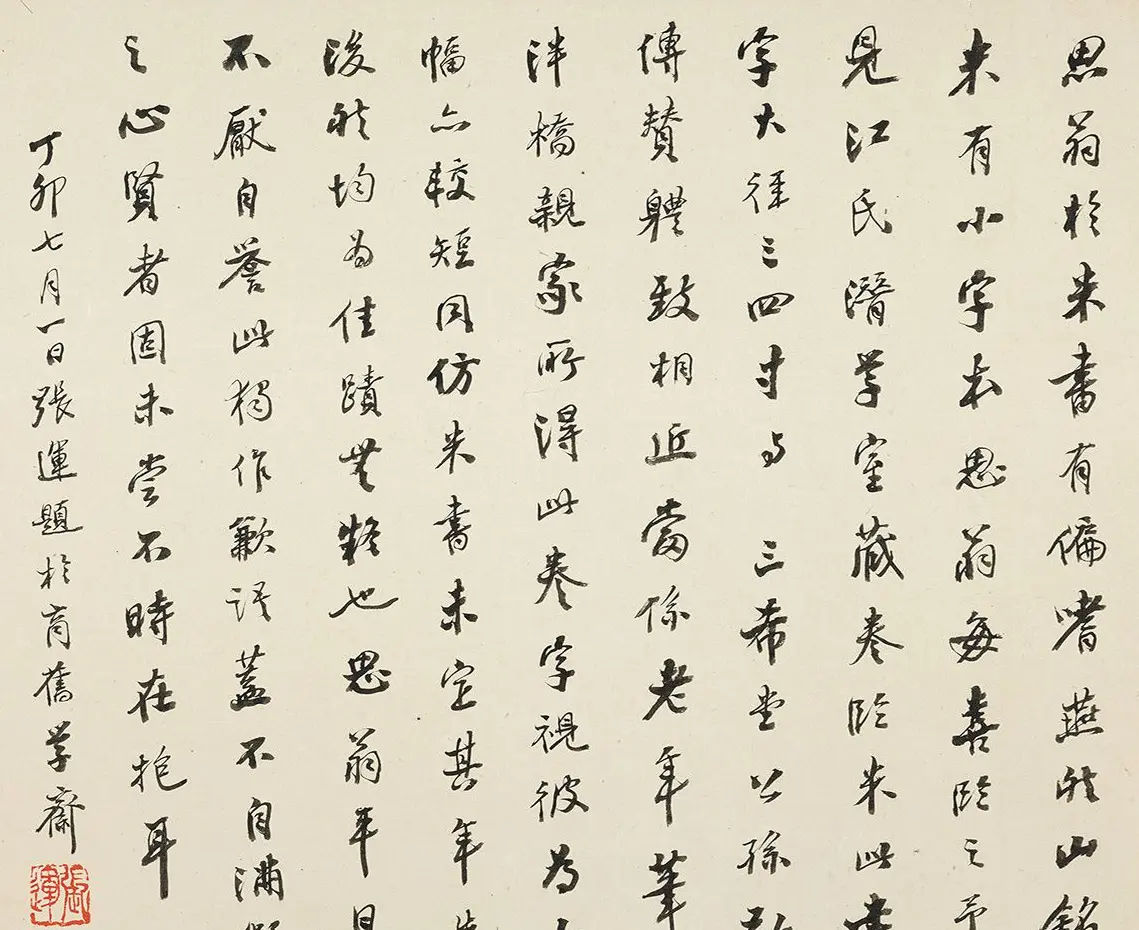 思翁於米書有偏嗜燕然山銘
米有小字本思翁每喜臨之予
見江氏潛學室藏卷臨米此書
字大徑三四寸与三希堂公孫弘
傳贊體致相近當係老年筆
泮橋親家所得此卷字視彼為
幅亦較短同仿米書未定其年
後然均為佳蹟無疑也思翁平日
不厭自譽此獨作歉語蓋不自滿
之心賢者固未嘗不時在抱耳
丁卯七月一日張運題於肯舊學齋
張運